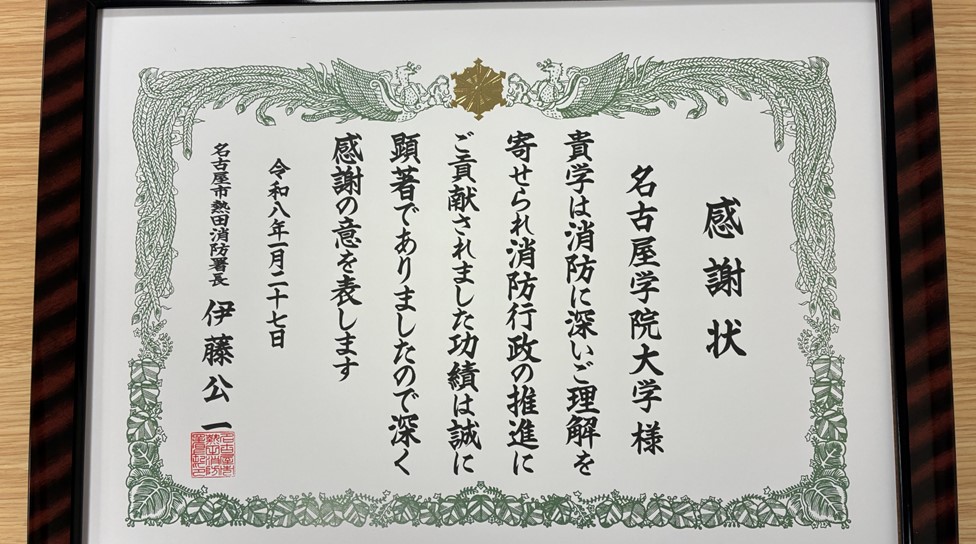 感謝状
名古屋学院大学 様
貴学は消防に深いご理解を
寄せられ消防行政の推進に
ご貢献されました功績は誠に
顕著でありましたので深く
感謝の意を表します
令和八年一月二十七日
名古屋市熱田消防署長 伊藤公一